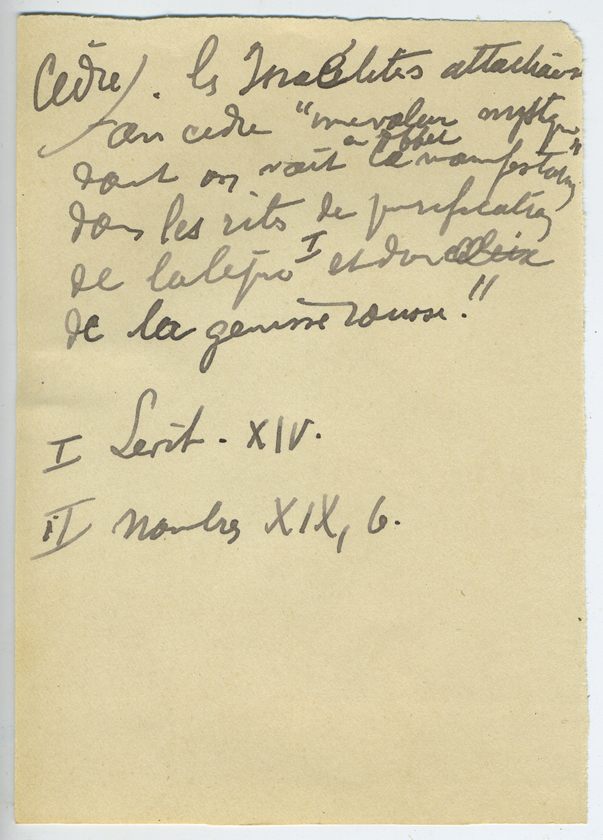 Cèdre). les Israélites attachaient
au cèdre "une valeur mystique"
dont on voit la manifestation
dans les rites de purification
de la lèpre I et
de la genisse rousse."
I Levit. XIV.
II Nombres XIX, 6.